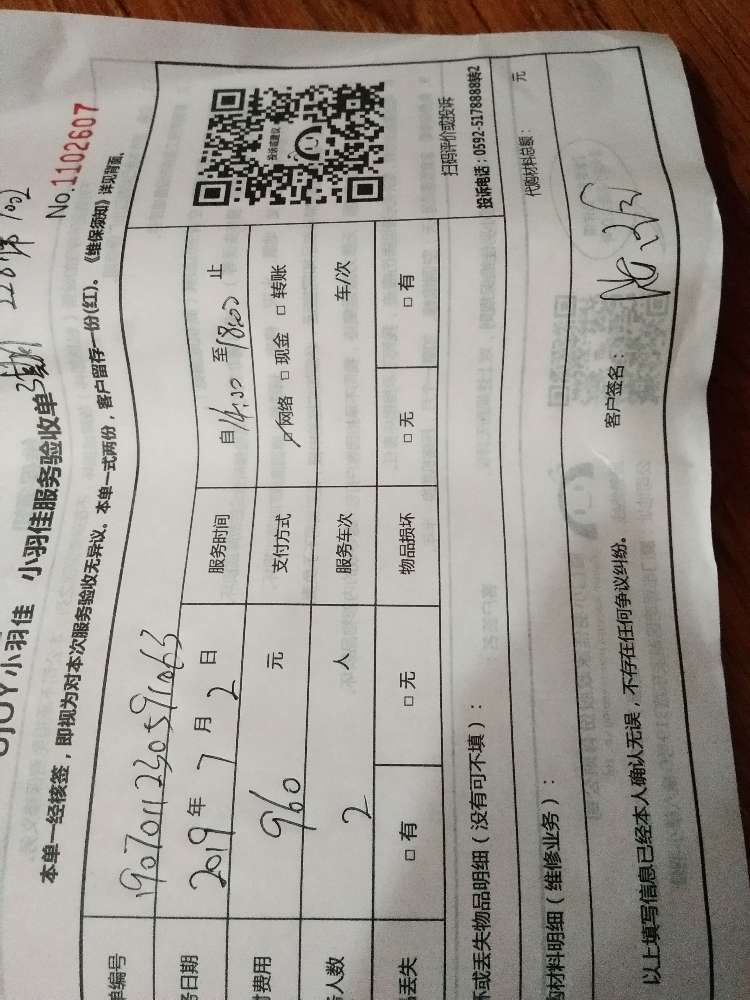 小羽佳 小羽佳服务验收单
No.1102607
本单一经核签，即视为对本次服务验收无异议。本单一式两份，客户留存一份(红)。《维保须知》详见背面。
单编号 190701123059163
务日期 2019年7月2日 服务时间 自14:00至18:00止
付费用 960元 支付方式 ☑网络 □现金 □转账
务人数 2人 服务车次 车/次
品丢失 □有 □无 物品损坏 □无 □有
投诉或建议
扫码评价或投诉
投诉电话：0592-5178888转2
坏或丢失物品明细（没有可不填）：
购材料明细（维修业务）：
代购材料总额： 元
以上填写信息已经本人确认无误，不存在任何争议纠纷。
客户签名：